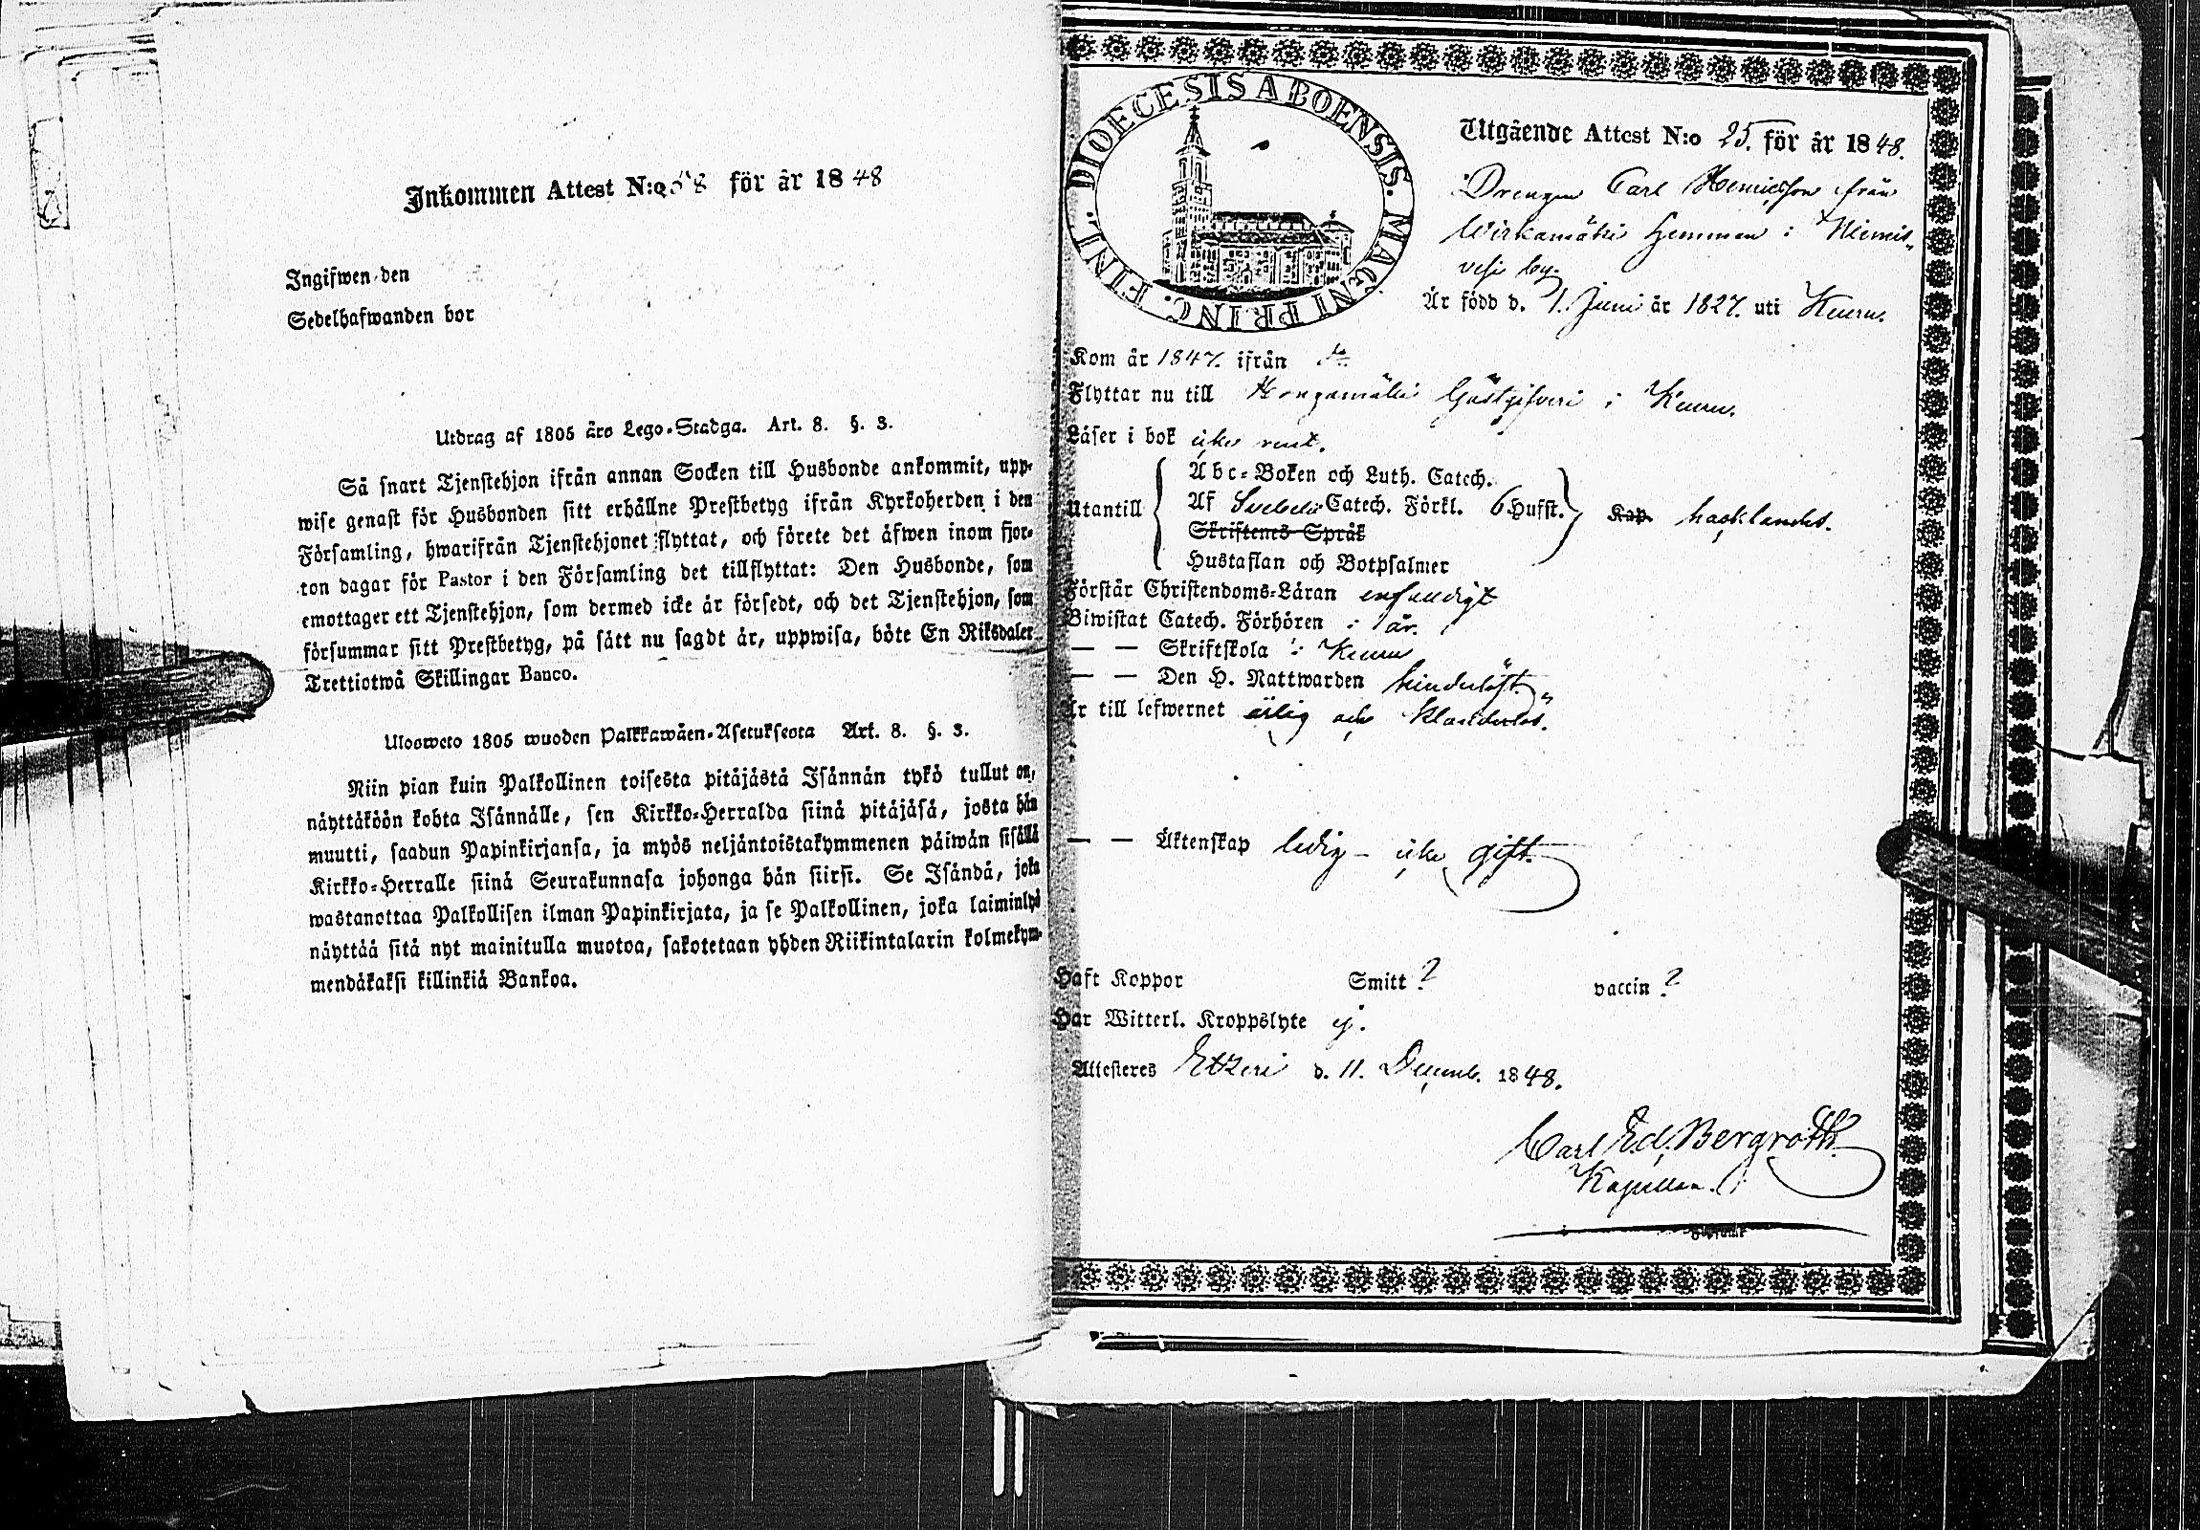 Inkommen Attest N:o 58 för år 1848
Ingifwen den
Sedelhafwanden bor
Utdrag af 1805 års Lego-Stadga. Art. 8. §. 3.
Så snart Tjenstehjon ifrån annan Socken till Husbonde ankommit, upp-
wise genast för Husbonden sitt erhållne Prestbetyg ifrån Kyrkoherden i den
Församling, hwarifrån Tjenstehjonet flyttat, och förete det äfwen inom fjor-
ton dagar för Pastor i den Församling det tillflyttat: Den Husbonde, som
emottager ett Tjenstehjon, som dermed icke är försedt, och det Tjenstehjon, som
försummar sitt Prestbetyg, på sätt nu sagdt är, uppwisa, böte En Riksdaler
Trettiotwå Skillingar Banco.
Ulosweto 1805 wuoden Palkkawäen-Asetuksesta Art. 8. §. 3.
Niin pian kuin Palkollinen toisesta pitäjästä Isännän tykö tullut on,
näyttäköön kohta Isännälle, sen Kirkko-Herralda siinä pitäjäsä, josta hän
muutti, saadun Papinkirjansa, ja myös neljäntoistakymmenen päiwän sisällä
Kirkko-Herralle siinä Seurakunnasa johonga hän siirsi. Se Isändä, joka
wastanottaa Palkollisen ilman Papinkirjata, ja se Palkollinen, joka laiminlyö
näyttää sitä nyt mainitulla muotoa, sakotetaan yhden Riikintalarin kolmekym-
mendäkaksi killinkiä Bankoa.
DIOECESIS ABOENSIS. MAGNI PRINC. FINL.
Utgående Attest N:o 25. för år 1848.
Drengen Carl Henricsson från
Wirkamäki hemman i Niemis-
vesi by.
Är född d. 1. Juni år 1827. uti Keuru.
Kom år 1847. ifrån
Flyttar nu till Kongamäki Gästgifveri i Keuru.
Läser i bok icke rent.
Abc-Boken och Luth. Catech.
Utantill Af Svebelii Catech. Förkl. 6 Hufst. Kap. hacklandes.
Skriftenes Språk
Hustaflan och Botpsalmer
Förstår Christendoms-Läran enfaldigt
Biwistat Catech. Förhören i år.
— — Skriftskola i Keuru
— — Den H. Nattwarden hinderlöst.
Är till lefwernet ärlig och klanderlös.
— — Äktenskap ledig – icke gift.
Haft Koppor Smitt ? vaccin ?
Har Witterl. Kroppslyte ej.
Attesteres Etzeri d. 11. Decemb. 1848.
Carl Ed. Bergroth
Kapellan.